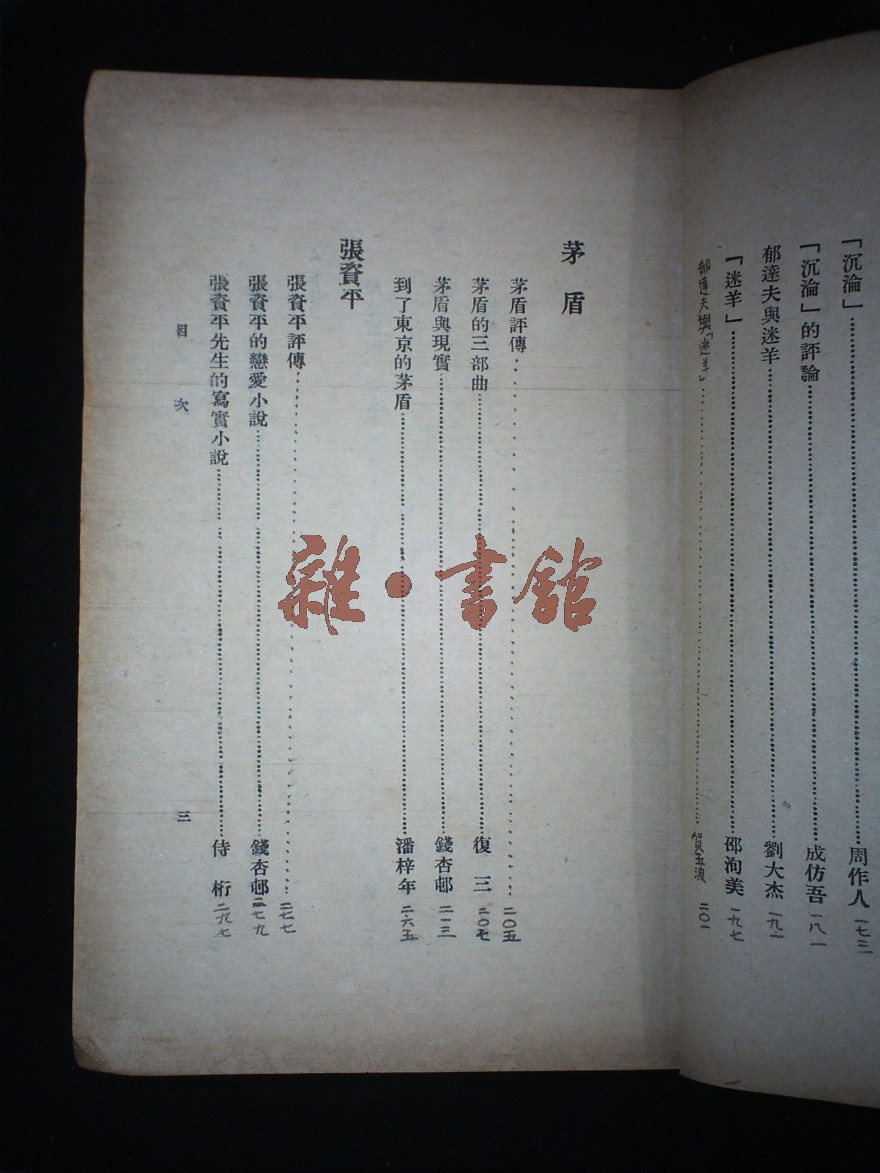 「沉淪」……周作人 一七三
「沉淪」的評論……成仿吾 一八一
郁達夫與迷羊……劉大杰 一九一
「迷羊」……邵洵美 一九七
郁達夫與「迷羊」……賀玉波 二〇一
茅盾
茅盾評傳……二〇五
茅盾的三部曲……復三 二〇七
茅盾與現實……錢杏邨 二一三
到了東京的茅盾……潘梓年 二六五
張資平
張資平評傳……二七七
張資平的戀愛小說……錢杏邨 二七九
張資平先生的寫實小說……侍桁 二九七
目次
三
雜·書館